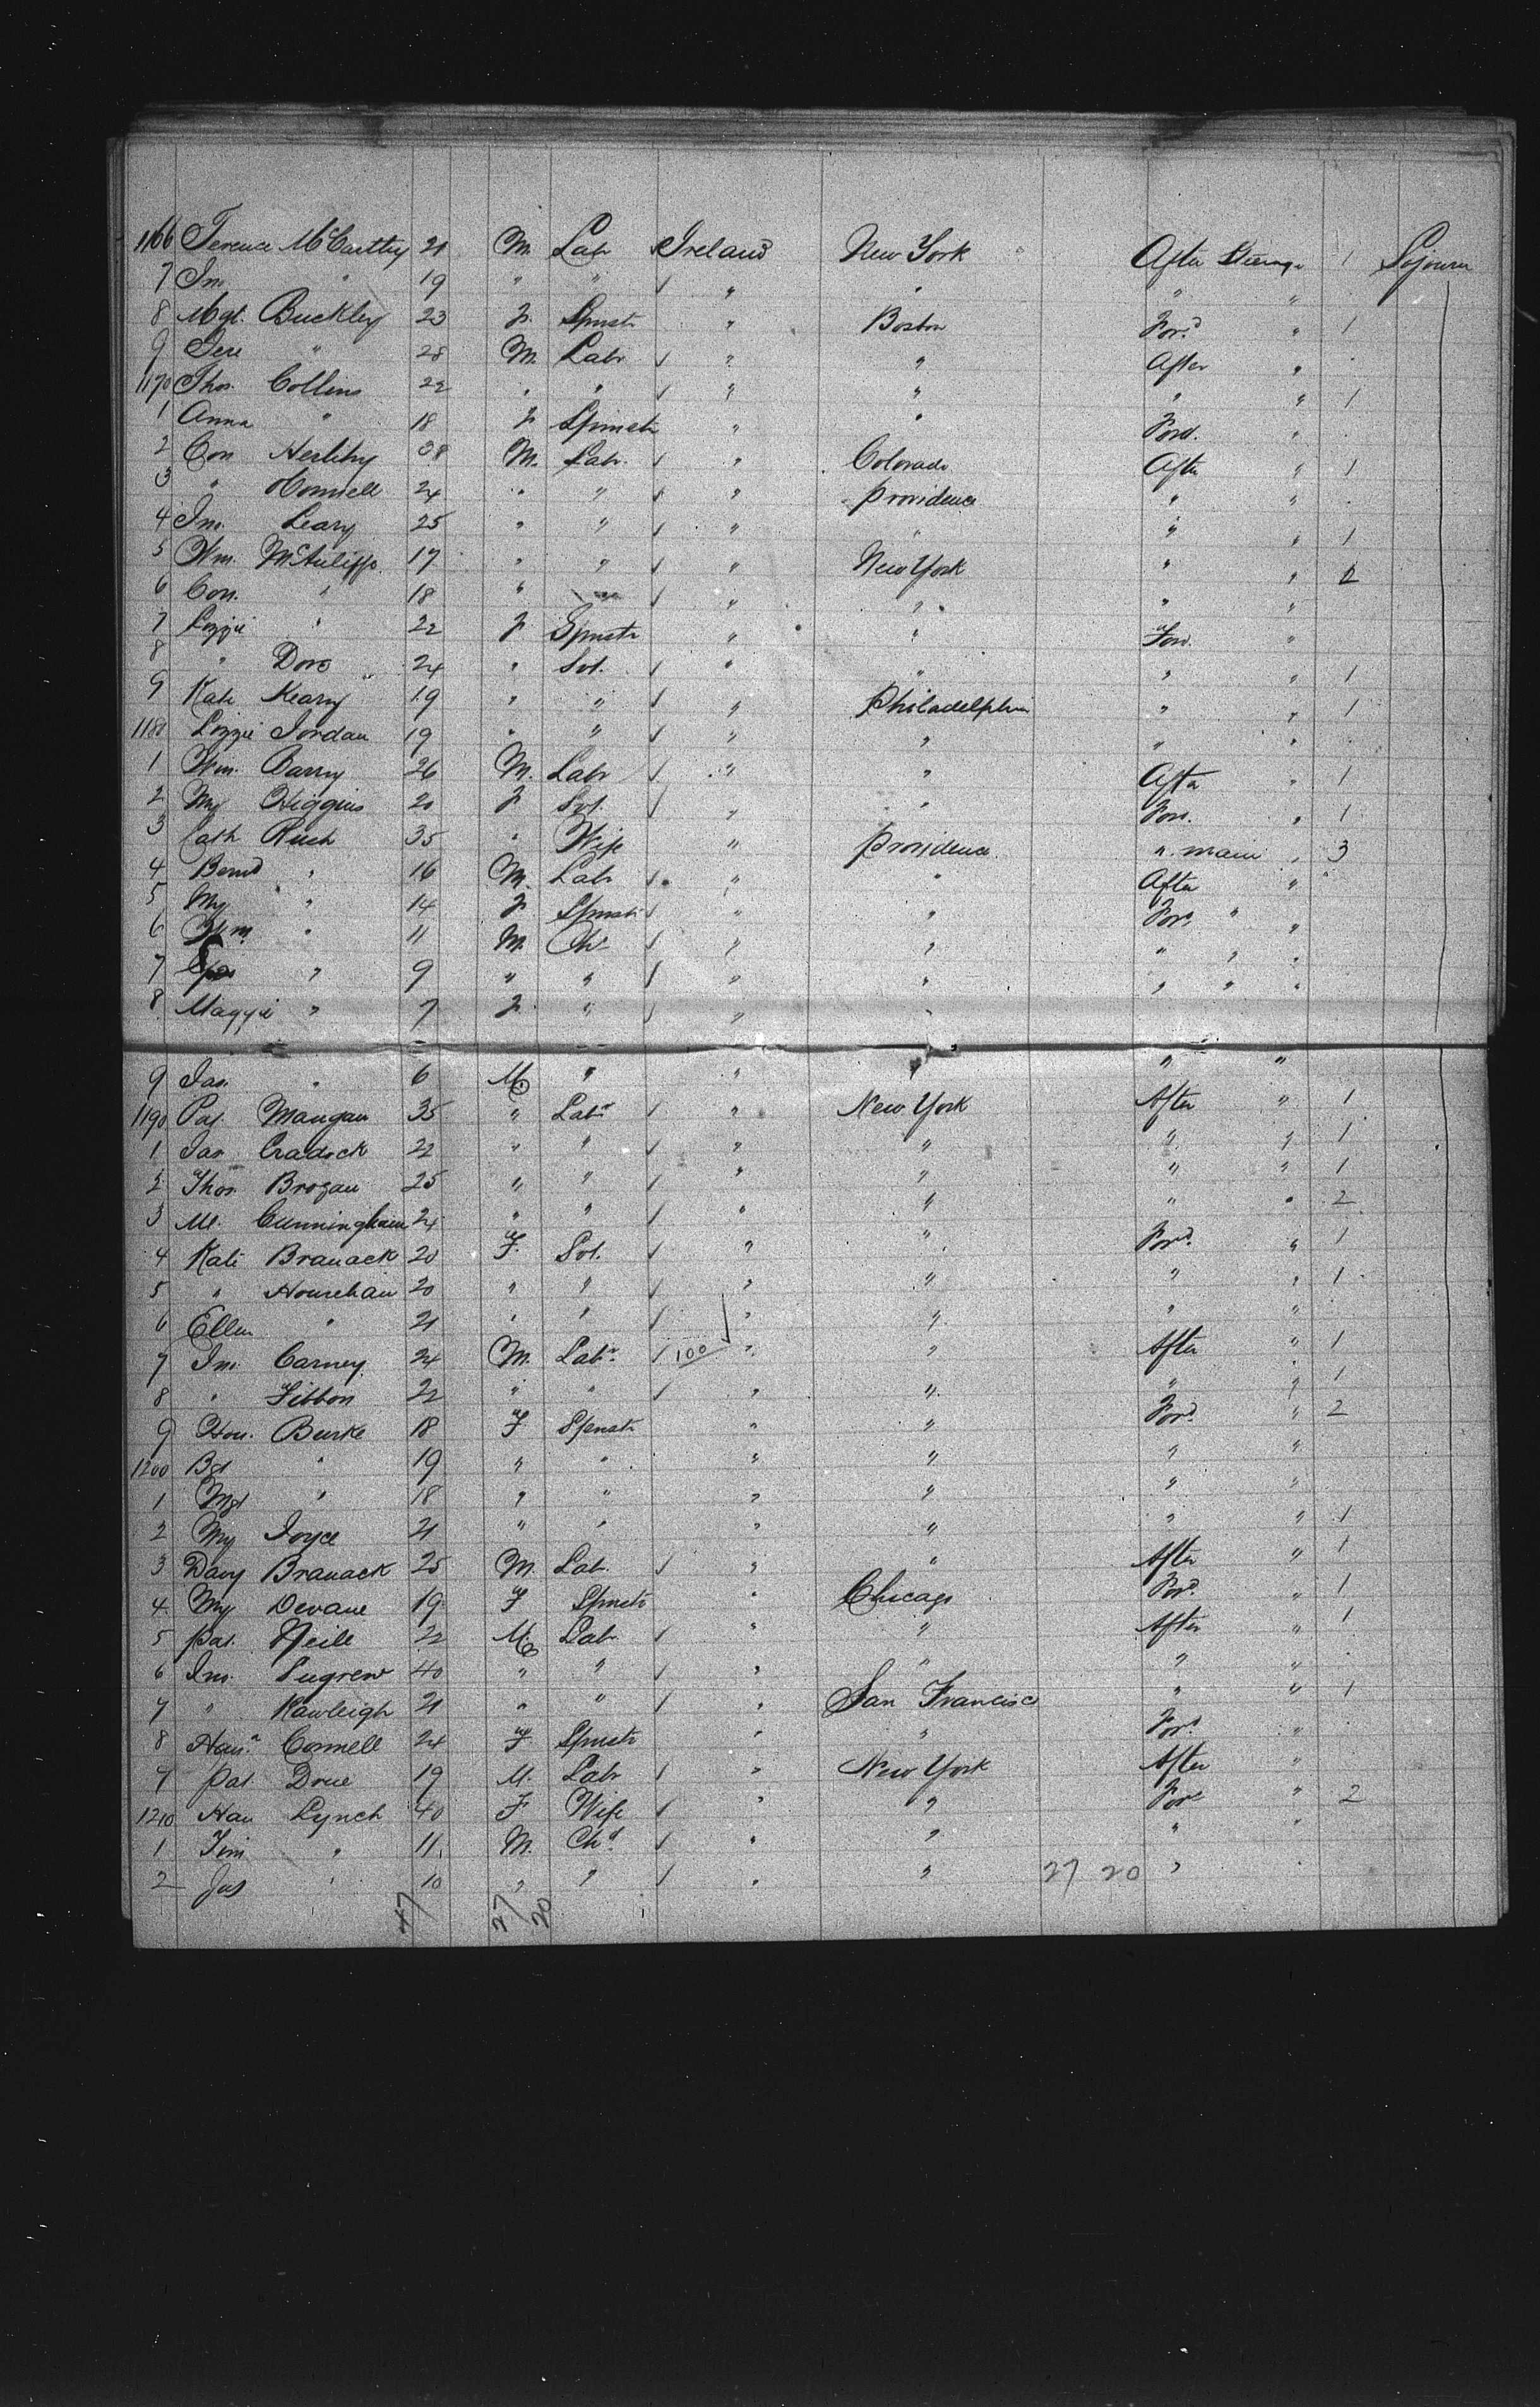 1166 Terence McCarthy 21 M. Labr Ireland New York After Steerage 1 Sojourn
7 Jno " 19 " " " " " "
8 Mgt. Buckley 23 F. Spinstr " Boston Ford " 1
9 Jere " 28 M. Labr " " After "
1170 Thos. Collins 22 " " " " " " 1
1 Anna " 18 F Spinstr " " Ford. "
2 Con Herlihy 38 M. Labr. " Colorado After " 1
3 " OConnell 24 " " " Providence " "
4 Jno. Leary 25 " " " " " " 1
5 Wm. McAuliffe 17 " " " New York " " 2
6 Con. " 18 " " " " "
7 Lizzie " 22 F Spinstr " " Ford. "
8 " Dore 24 " Svt. " " " " 1
9 Kate Keary 19 " " " Philadelphia " " 1
1180 Lizzie Jordan 19 " " " " " "
1 Wm. Barry 26 M. Labr " " After " 1
2 My Higgins 20 F Svt. " " Ford. " 1
3 Cath 35 " Wife " Providence " " 3
4 Bernd " 16 M. Labr " " After "
5 My " 14 F. Spinstr " " Ford " "
6 Wm. " 11 M. Chd " " " " "
7 " 9 " " " " " " "
8 Maggie " 7 F. " " "
9 Jas. " 6 M. " " " " "
1190 Pat. Mangan 35 " Labr " New York After " 1
1 Jas. Cradock 22 " " " " " " 1
2 Thos. Brogan 25 " " " " " " 1
3 Ml. Cunningham 24 " " " " " " 2
4 Kate Branack 20 F. Svt. " " Ford. " 1
5 " Hourehan 20 " " " " " " 1
6 Ellen " 21 " " " " " "
7 Jno. Carney 24 M. Labr. 100 " " After " 1
8 " Fibbon 22 " " " " " " 1
9 Hon. Burke 18 F. Spinstr " " Ford. " 2
1200 Bgt " 19 " " " " " "
1 Mgt " 18 " " " " " "
2 My Joyce 21 " " " " " " 1
3 Davy Branack 25 M. Lab. " " After " 1
4 My Devane 19 F Spinstr " Chicago Ford. " 1
5 Pat. Neill 22 M. Labr " " After " 1
6 Jno. Sugrew 40 " " " " " "
7 " Rawleigh 21 " " " San Francisco " " 1
8 Hana. Connell 24 F. Spinstr " " Ford. "
9 Pat. 19 M. Labr " New York After "
1210 Han Lynch 40 F Wife " " Ford " 2
1 Tim " 11 M. Chd " " " "
2 Jas " 10 " " " " 27 20 "
47 27/20